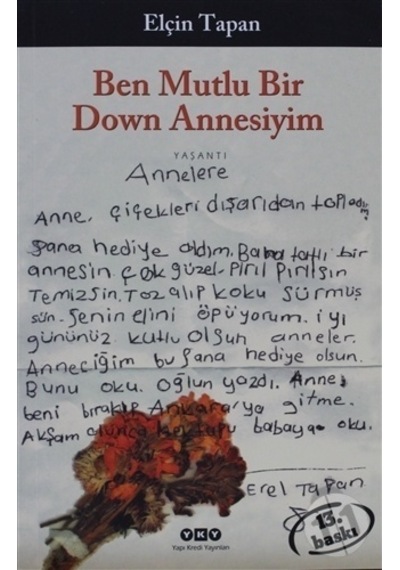 Elçin Tapan
Ben Mutlu Bir
Down Annesiyim
YAŞANTI
Annelere
Anne, çiçekleri dışarıdan topladım
Şana hediye aldım. Bana tatlı bir
annesin. çok güzel-Pırıl Pırılşın
Temizsin. Toz alıp koku sürmüş
sün. Şenin elini öpüyorum. iyi
gününüz kutlu olsun anneler.
Anneciğim bu şana hediye olsun.
Bunu oku. Oğlun yazdı. Anne,
beni bırakıp Ankara'ya gitme.
Akşam olunca mektubu babaya oku.
Erel Tapan
13.
baskı
YKY
Yapı Kredi Yayınları